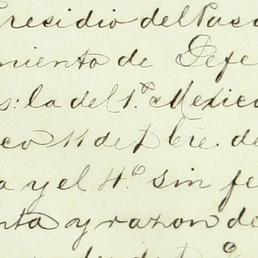 Presidio del Paso
miento de Defe
s: la del 1.º Mexico
co 11 de Dbre. de
a y el 4.º sin fe
nta y razon de